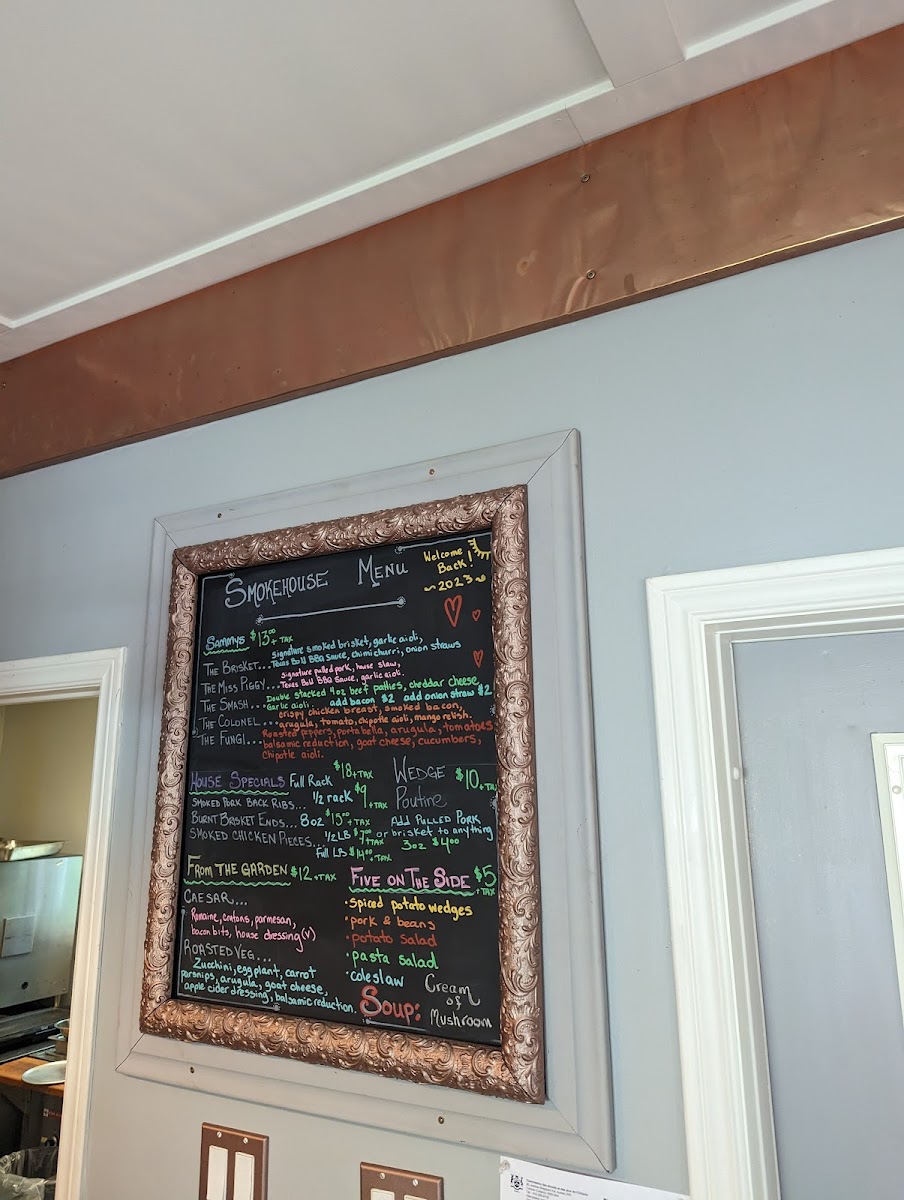 Smokehouse Menu
Welcome
Back!
~2023~
Sammys $13.00 + TAX
The Brisket... signature smoked brisket, garlic aioli,
Texas Bold BBQ Sauce, chimichurri, onion straws
The Miss Piggy... signature pulled pork, house slaw,
Texas Bold BBQ Sauce, garlic aioli.
The Smash... Double stacked 4oz beef patties, cheddar cheese,
Garlic aioli. add bacon $2 add onion straw $2
The Colonel... crispy chicken breast, smoked bacon,
arugula, tomato, chipotle aioli, mango relish.
The Fungi... Roasted peppers, portabella, arugula, tomatoes
balsamic reduction, goat cheese, cucumbers,
Chipotle aioli.
House Specials
Smoked Pork Back Ribs... Full Rack $18 + TAX
1/2 rack $9 + TAX
Burnt Brisket Ends... 8oz $15.00 + TAX
Smoked Chicken Pieces... 1/2 LB $7.00 + TAX
Full LB $14.00 + TAX
Wedge $10 + TAX
Poutine
Add Pulled Pork
or brisket to anything
3oz $4.00
From The Garden $12 + TAX
Caesar...
Romaine, crutons, parmesan,
bacon bits, house dressing (v)
Roasted Veg...
Zucchini, eggplant, carrot
parsnips, arugula, goat cheese,
apple cider dressing, balsamic reduction.
Five on The Side $5 + TAX
·spiced potato wedges
·pork & beans
·potato salad
·pasta salad
·coleslaw
Soup: Cream
of
Mushroom